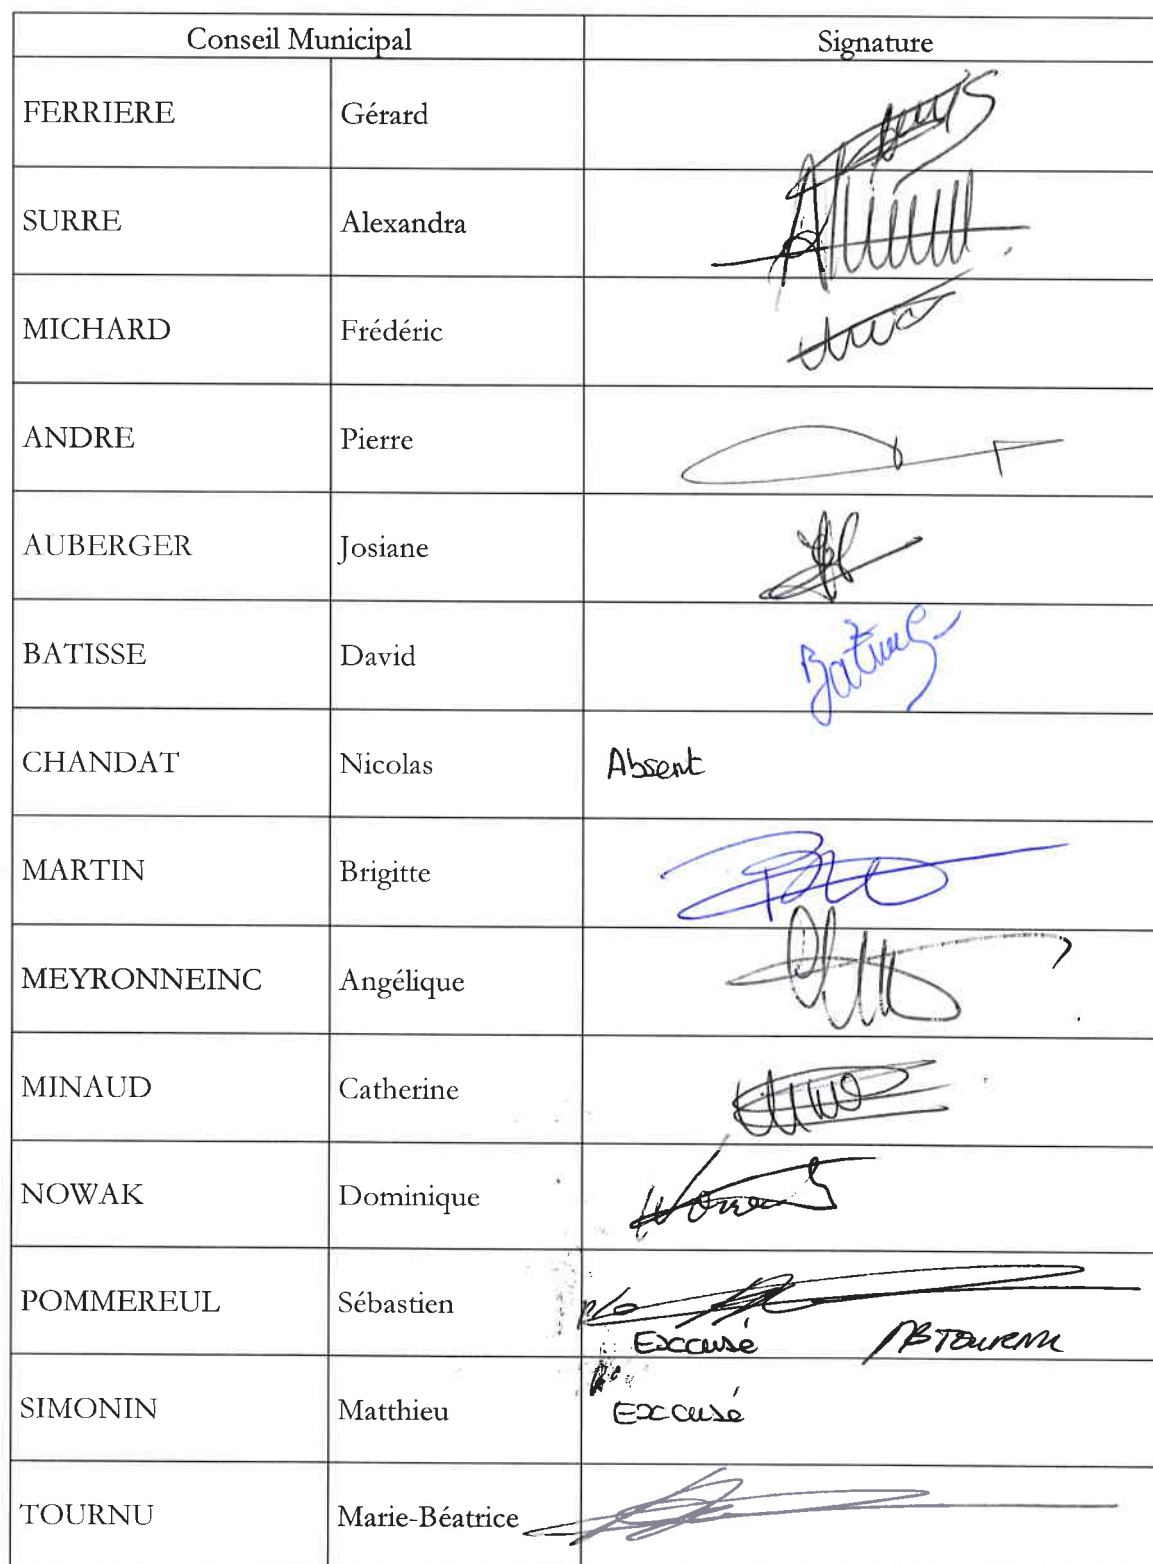 Conseil Municipal Signature
FERRIERE Gérard
SURRE Alexandra
MICHARD Frédéric
ANDRE Pierre
AUBERGER Josiane
BATISSE David
CHANDAT Nicolas Absent
MARTIN Brigitte
MEYRONNEINC Angélique
MINAUD Catherine
NOWAK Dominique
POMMEREUL Sébastien P/o
Excusé MB TOURNU
SIMONIN Matthieu Excusé
TOURNU Marie-Béatrice